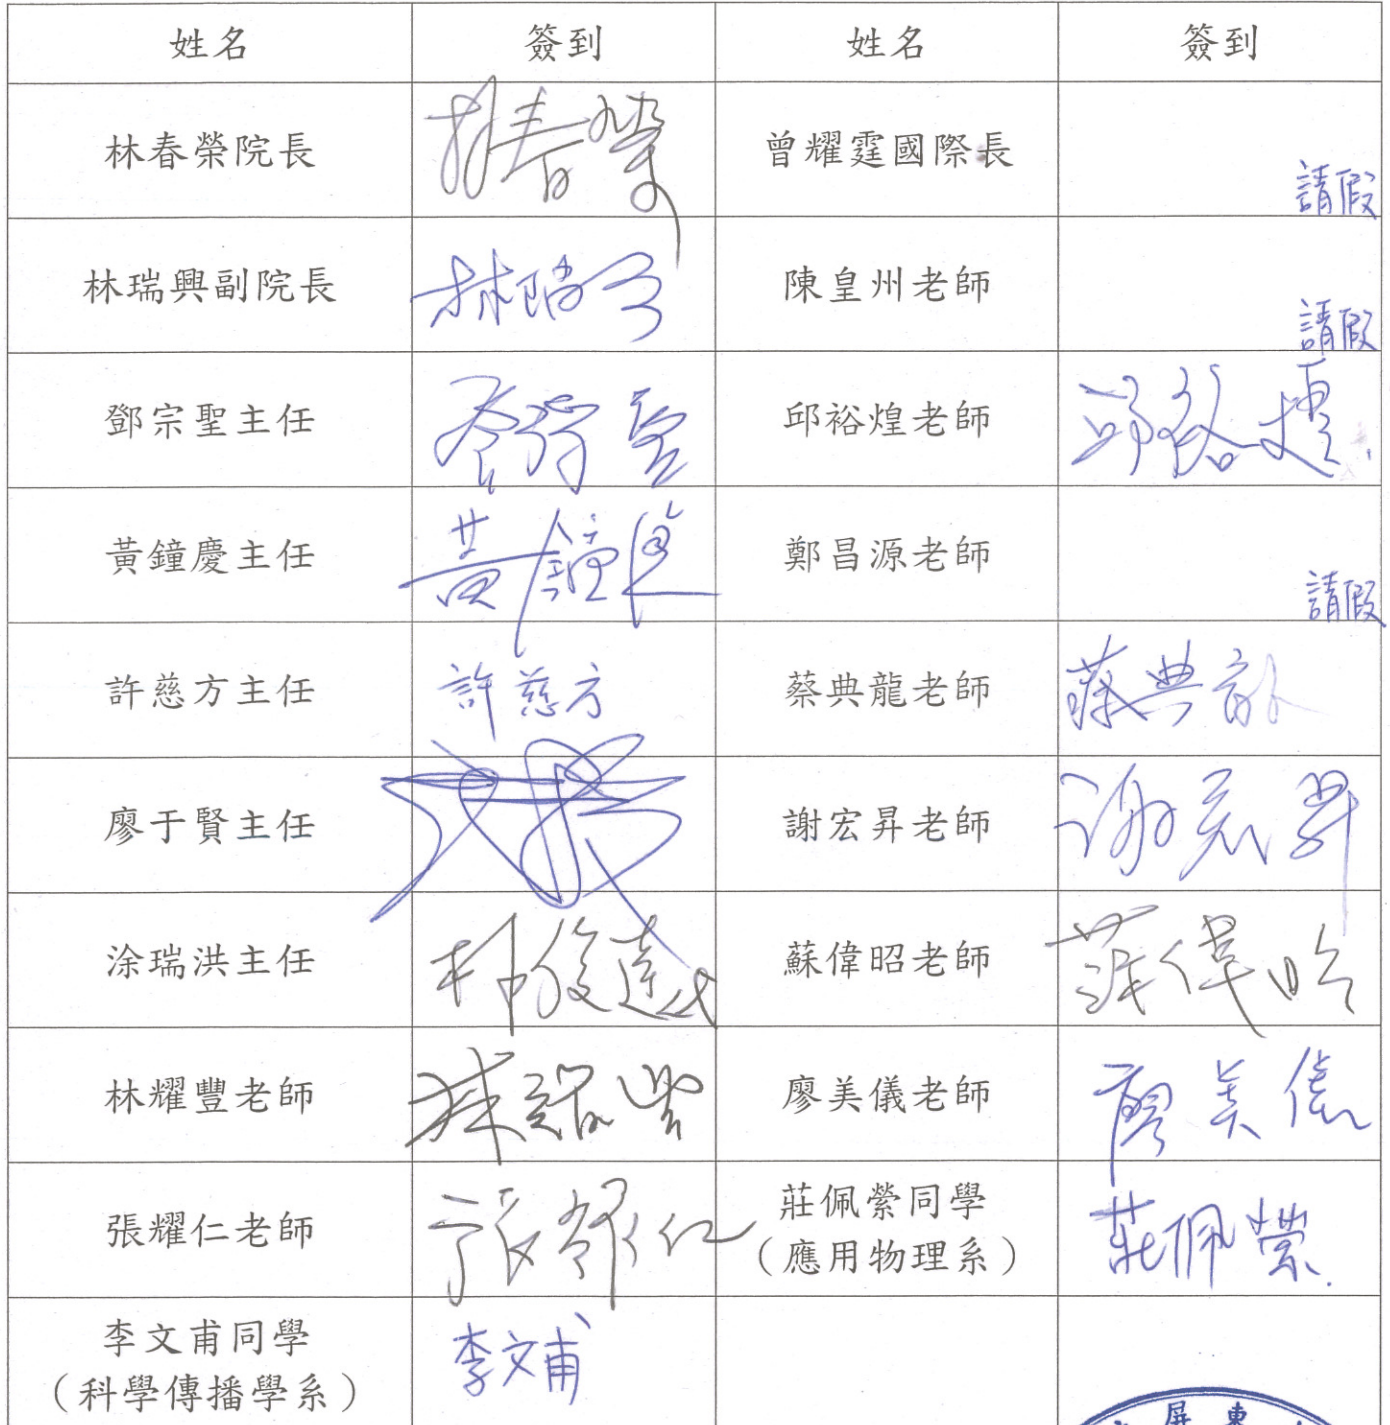 姓名 簽到 姓名 簽到
林春榮院長 林春榮 曾耀霆國際長 請假
林瑞興副院長 林瑞興 陳皇州老師 請假
鄧宗聖主任 邱裕煌老師 邱裕煌
黃鐘慶主任 黃鐘慶 鄭昌源老師 請假
許慈方主任 許慈方 蔡典龍老師 蔡典龍
廖于賢主任 謝宏昇老師 謝宏昇
涂瑞洪主任 林俊達 蘇偉昭老師 蘇偉昭
林耀豐老師 林耀豐 廖美儀老師 廖美儀
張耀仁老師 張耀仁 莊佩縈同學 莊佩縈
（應用物理系）
李文甫同學 李文甫
（科學傳播學系）
屏東